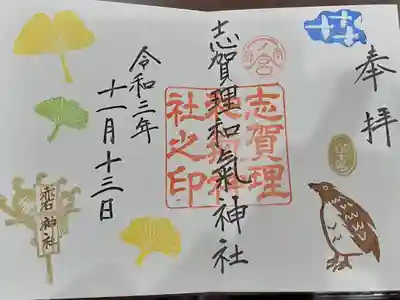 奉拝
志賀理和氣神社
令和三年
十一月十三日
志賀理
和氣神
社之印
赤石神社